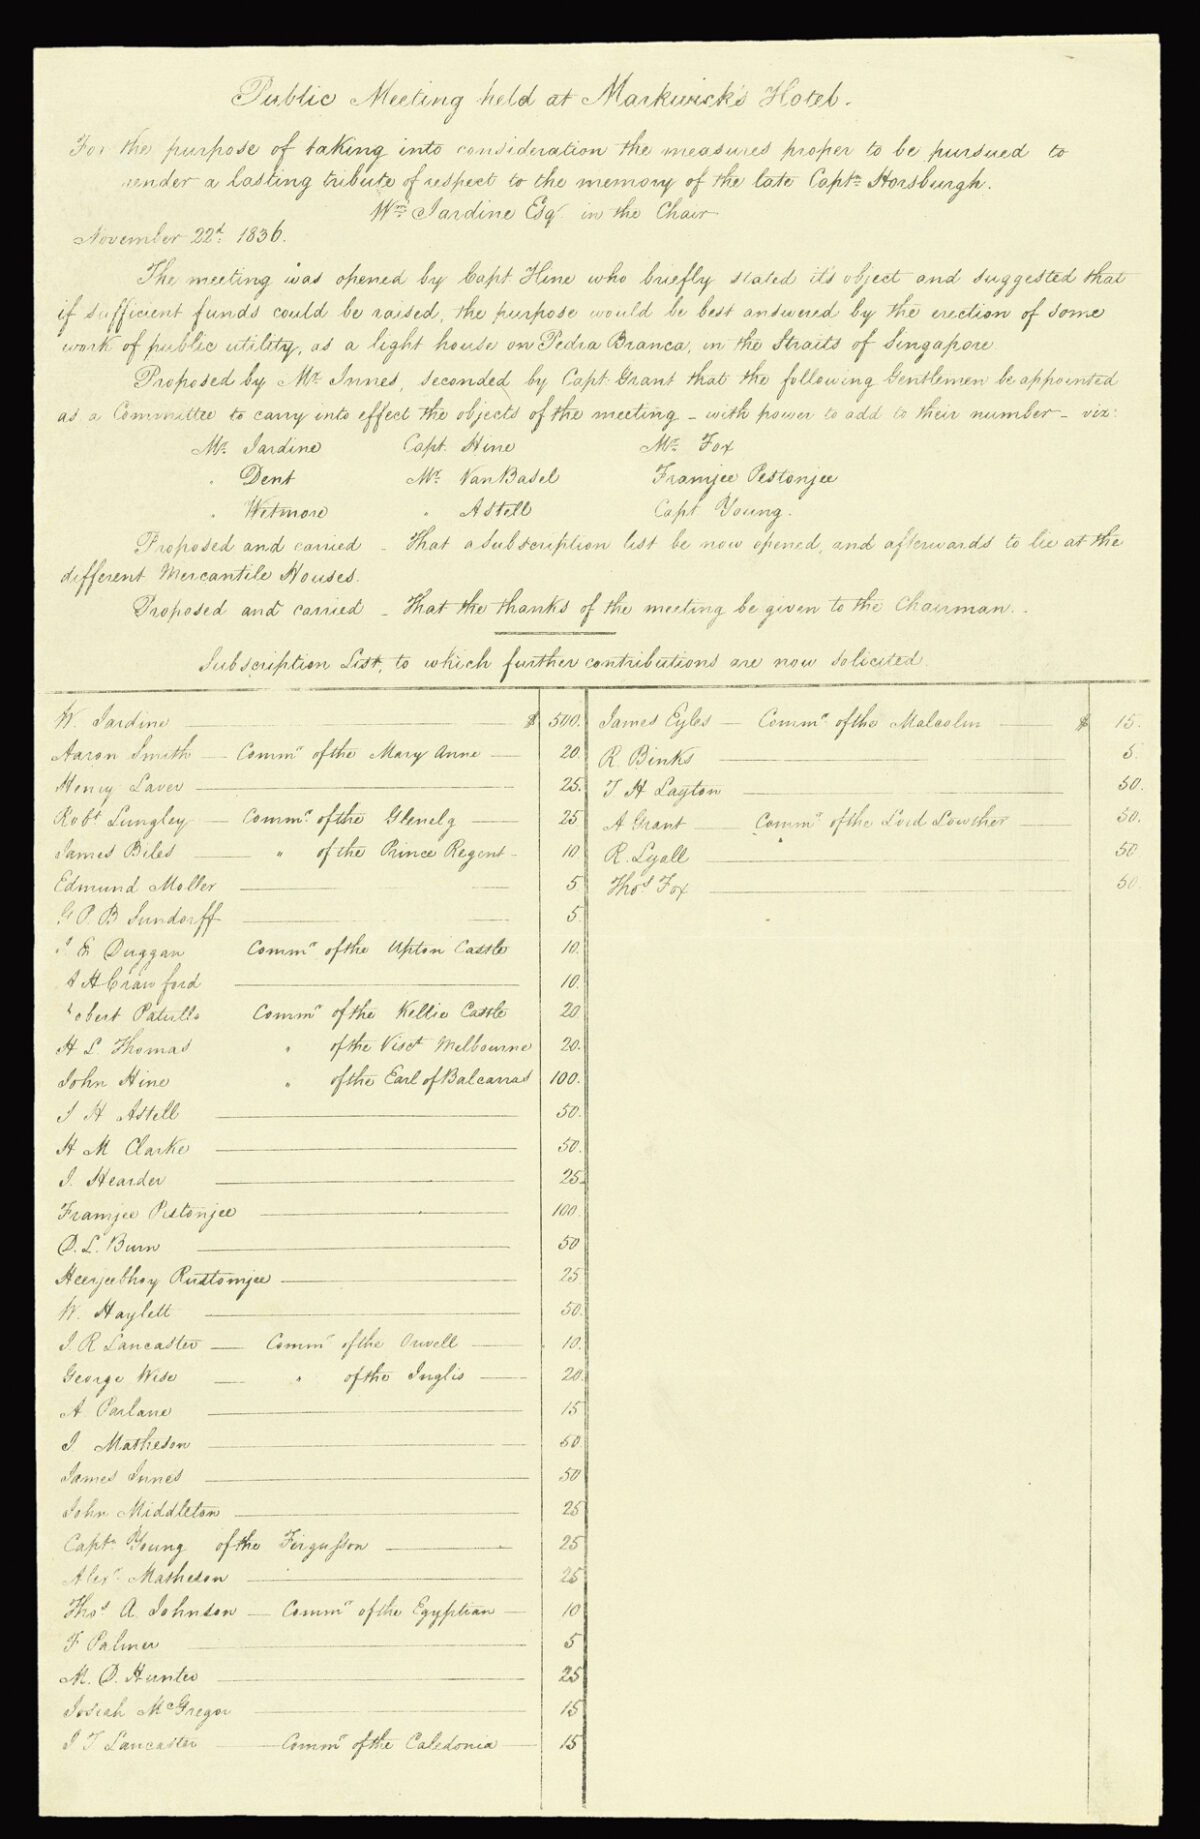 Public Meeting held at Markwick's Hotel.
For the purpose of taking into consideration the measures proper to be pursued to
render a lasting tribute of respect to the memory of the late Captn Horsburgh.
Wm Jardine Esq. in the Chair
November 22d. 1836.
The meeting was opened by Capt. Hine who briefly stated its object and suggested that
if sufficient funds could be raised, the purpose would be best answered by the erection of some
work of public utility, as a light house on Pedra Branca, in the Straits of Singapore
Proposed by Mr. Innes, seconded by Capt. Grant that the following Gentlemen be appointed
as a Committee to carry into effect the objects of the meeting - with power to add to their number - viz:
Mr. Jardine Capt. Hine Mr. Fox
" Dent Mr. Van Basel Framjee Pestonjee
" Wetmore " Astell Capt Young.
Proposed and carried - That a subscription list be now opened, and afterwards to lie at the
different Mercantile Houses.
Proposed and carried - That the thanks of the meeting be given to the Chairman.
Subscription List, to which further contributions are now solicited.
W. Jardine $ 500.
Aaron Smith Commr of the Mary Anne 20.
Henry Laver 25.
Robt Lungley Commr. of the Glenelg 25
James Biles " of the Prince Regent 10.
Edmund Moller 5
G P. B Sundorff 5.
Duggan Commr of the Upton Castle 10.
A H Crawford 10.
Robert Patullo Commr of the Kellie Castle 20
H L. Thomas " of the Visct Melbourne 20.
John Hine " of the Earl of Balcarras 100.
J H Astell 50.
H M Clarke 50.
J. Hearder 25.
Framjee Pestonjee 100.
D. L. Burn 50
Heerjeebhoy Rustomjee 25.
W. Haylett 50.
J. R Lancaster Commr of the Orwell 10.
George Wise " of the Inglis 20.
A. Parlane 15
J. Matheson 50.
James Innes 50
John Middleton 25
Captn Young of the Fergusson 25
Alexr. Matheson 25
Thos A. Johnson Commr of the Egyptian 10
F Palmer 5
M. D. Hunter 25
Josiah McGregor 15
J T Lancaster Commr of the Caledonia 15
James Eyles Commr of the Malcolm $ 15.
R. Binks 5.
T H Layton 50.
A Grant Commr of the Lord Lowther 50.
R. Lyall 50
Thos Fox 50.